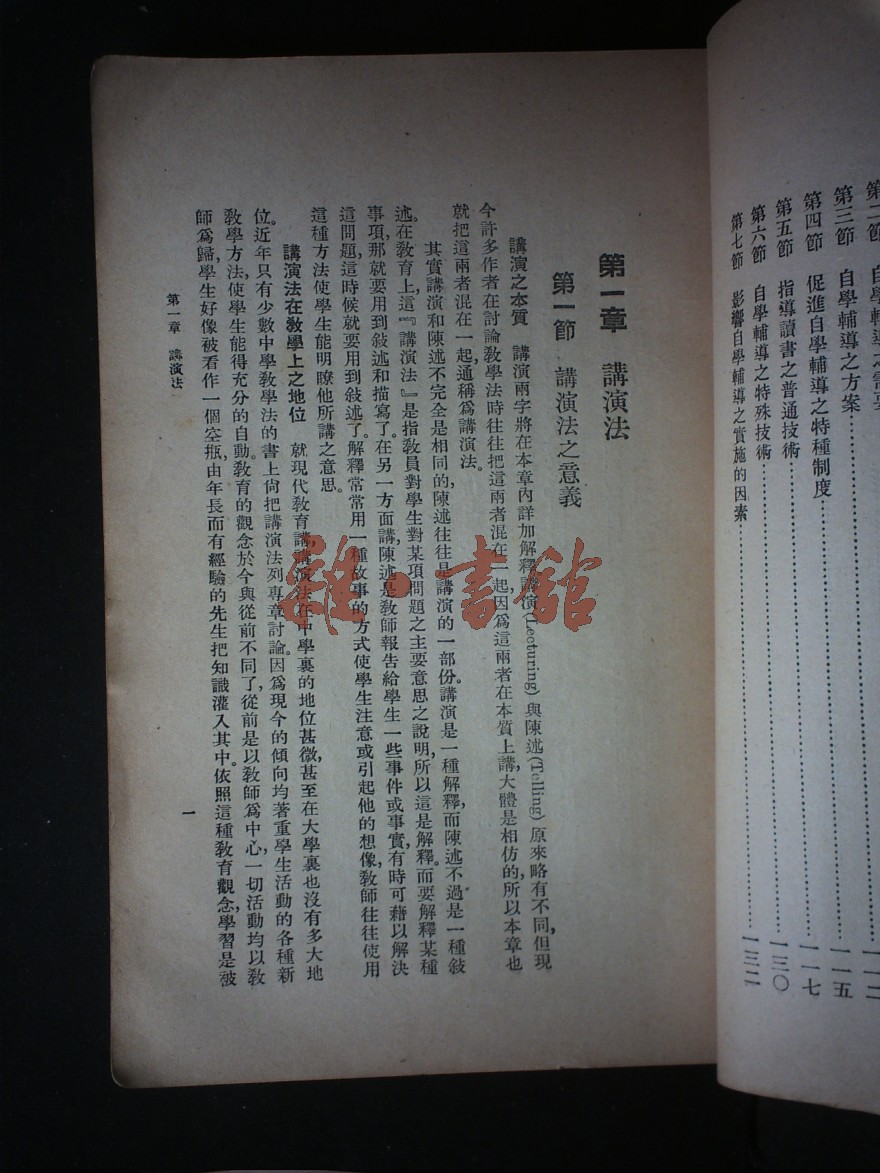 第二節 自學輔導之需要 一一二
第三節 自學輔導之方案 一一五
第四節 促進自學輔導之特種制度 一一七
第五節 指導讀書之普通技術 一三〇
第六節 自學輔導之特殊技術 一三二
第七節 影響自學輔導之實施的因素
第一章 講演法
第一節 講演法之意義
講演之本質 講演兩字將在本章內詳加解釋。講演(Lecturing)與陳述(Telling)原來略有不同,但現
今許多作者在討論教學法時往往把這兩者混在一起,因爲這兩者在本質上講,大體是相仿的,所以本章也
就把這兩者混在一起,通稱爲講演法。
其實講演和陳述不完全是相同的,陳述往往是講演的一部份。講演是一種解釋,而陳述不過是一種敍
述。在教育上,這『講演法』是指教員對學生對某項問題之主要意思之說明,所以這是解釋。而要解釋某種
事項,那就要用到敍述和描寫了。在另一方面講,陳述是教師報告給學生一些事件或事實,有時可藉以解決
這問題,這時候就要用到敍述了。解釋常常用一種故事的方式使學生注意或引起他的想像,教師往往使用
這種方法使學生能明瞭他所講之意思。
講演法在教學上之地位 就現代教育講,講演法在中學裏的地位甚微,甚至在大學裏也沒有多大地
位。近年只有少數中學教學法的書上尙把講演法列專章討論。因爲現今的傾向均著重學生活動的各種新
教學方法,使學生能得充分的自動。教育的觀念於今與從前不同了,從前是以教師爲中心,一切活動均以教
師爲歸,學生好像被看作一個空瓶,由年長而有經驗的先生把知識灌入其中。依照這種教育觀念,學習是被
第一章 講演法
一
雅·書館